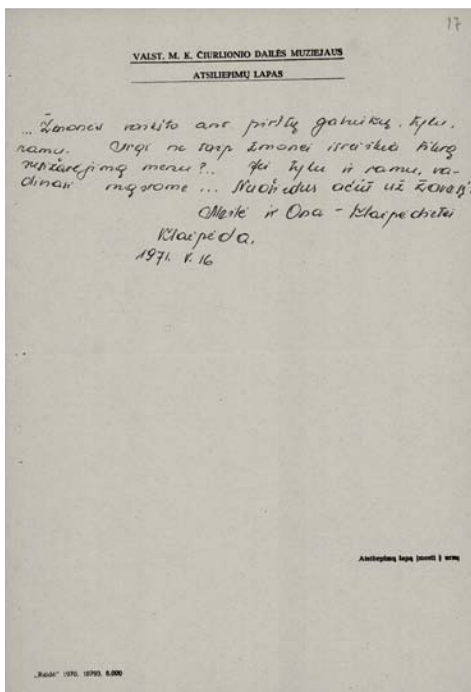 17
VALST. M. K. ČIURLIONIO DAILĖS MUZIEJAUS
ATSILIEPIMŲ LAPAS
... Žmonės vaikšto ant pirštų galiukų. Tylu.
ramu. Argi ne taip žmonei išreiškia tikrą
susižavėjimą menu?.. Jei tylu ir ramu, va-
dinasi mąstome ... Nuoširdus ačiū už
Meilė ir Ona - Klaipėdietės
Klaipėda,
1971. V. 16
Atsiliepimų lapą įmesti į urną
„Raidė" 1970. 10793. 5.000